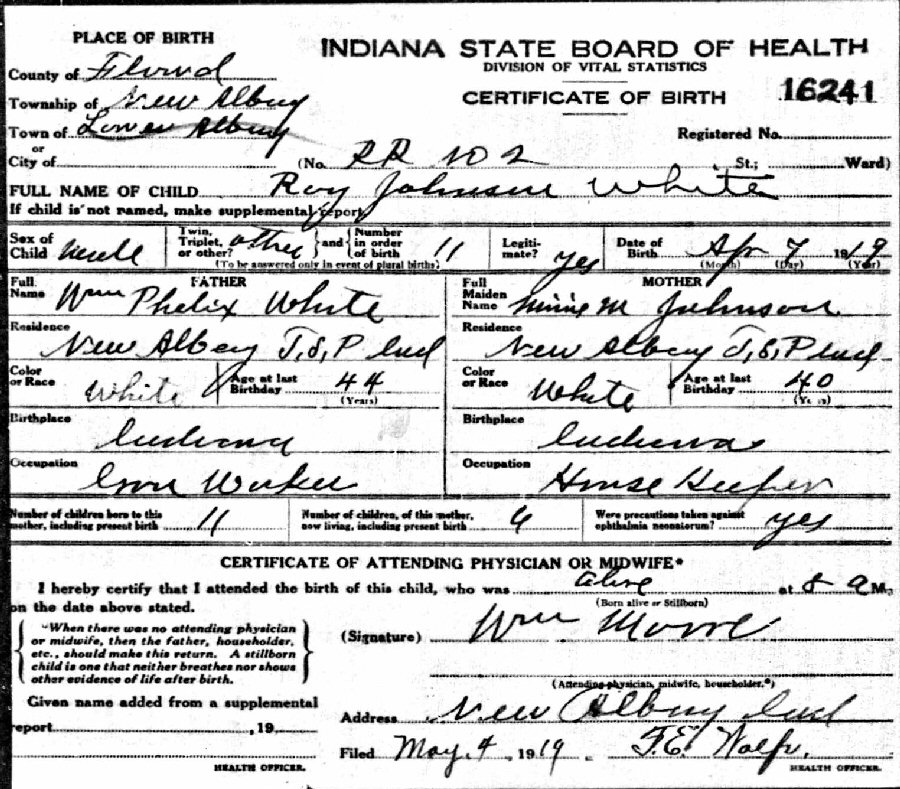 PLACE OF BIRTH
INDIANA STATE BOARD OF HEALTH
DIVISION OF VITAL STATISTICS
CERTIFICATE OF BIRTH 16241
County of Floyd
Township of New Albany
Town of Lower Albany
or
City of
Registered No.
(No. RR No 2 St.; Ward)
FULL NAME OF CHILD Roy Johnson White
If child is not named, make supplemental report
Sex of Child Male Twin, Triplet, or other? other and Number in order of birth 11 Legitimate? yes Date of Birth Apr 7 1919
(To be answered only in event of plural births) (Month) (Day) (Year)
FATHER
Full Name Wm Phelix White
Residence
New Albany T,S,P Ind
Color or Race White Age at last Birthday 44
(Years)
Birthplace
Indiana
Occupation
Iron Worker
MOTHER
Full Maiden Name Minnie M Johnson
Residence
New Albany T,S,P Ind
Color or Race White Age at last Birthday 40
(Years)
Birthplace
Indiana
Occupation
House Keeper
Number of children born to this mother, including present birth 11 Number of children, of this mother, now living, including present birth Were precautions taken against ophthalmia neonatorum? yes
CERTIFICATE OF ATTENDING PHYSICIAN OR MIDWIFE*
I hereby certify that I attended the birth of this child, who was alive at 8 a M.
(Born alive or Stillborn)
on the date above stated.
*When there was no attending physician
or midwife, then the father, householder,
etc., should make this return. A stillborn
child is one that neither breathes nor shows
other evidence of life after birth.
(Signature) Wm Moore
(Attending physician, midwife, householder.*)
Given name added from a supplemental
report , 19
HEALTH OFFICER.
Address New Albany Ind
Filed May 4, 1919 T.E. Wolfe.
HEALTH OFFICER.